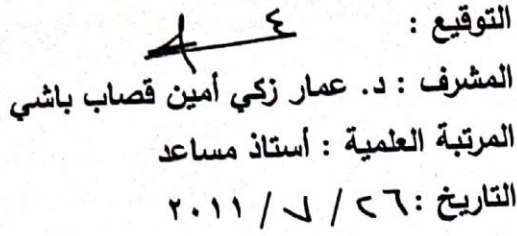 التوقيع :
المشرف : د. عمار زكي أمين قصاب باشي
المرتبة العلمية : أستاذ مساعد
التاريخ : ٢٦ / ٧ / ٢٠١١